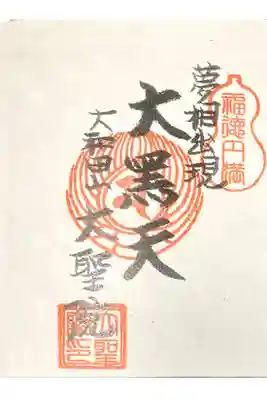 福徳円満
夢相出現
大黒天
大和田山 大聖院
大聖院印